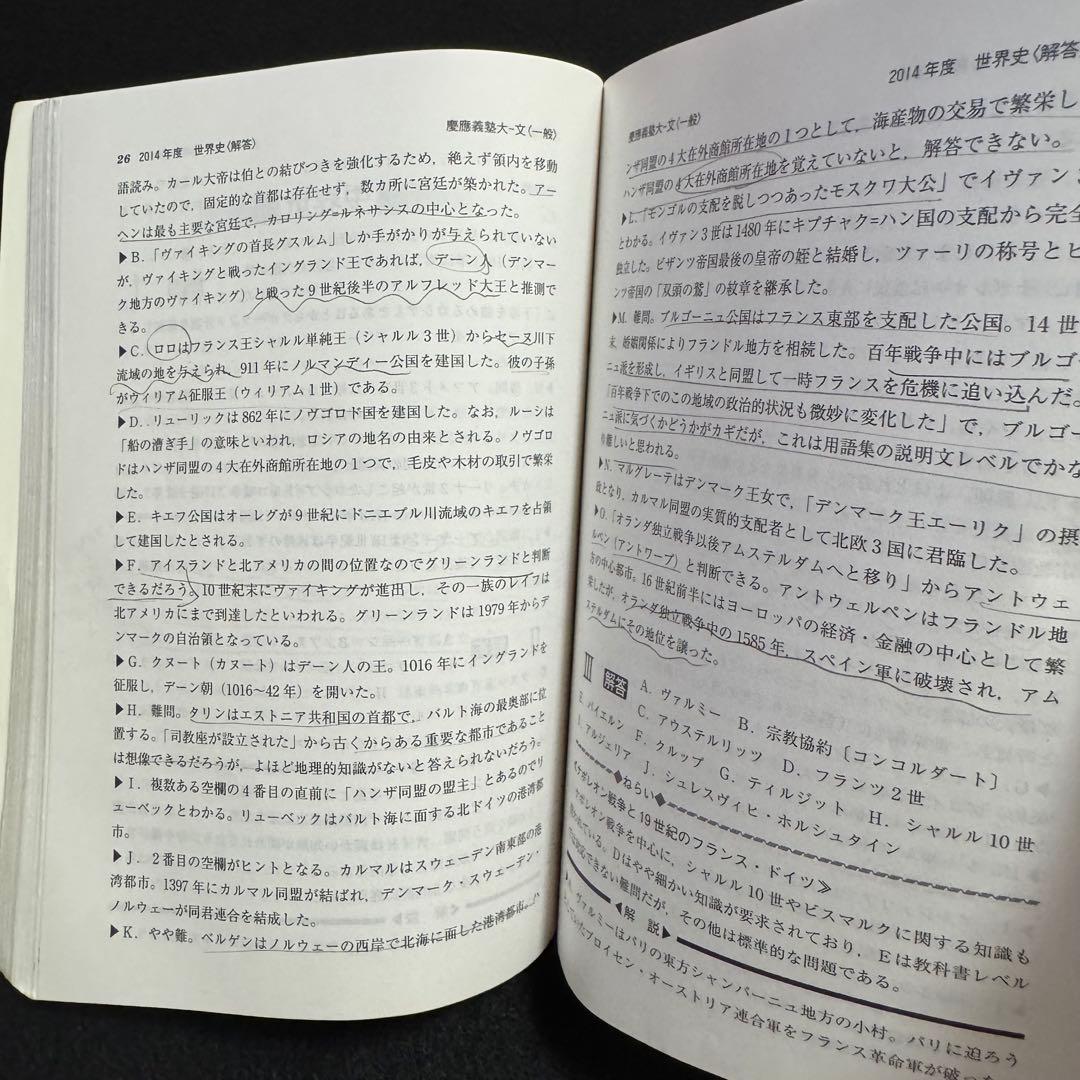 26 2014年度 世界史〈解答〉
慶應義塾大-文(一般)
語読み。カール大帝は伯との結びつきを強化するため，絶えず領内を移動
していたので，固定的な首都は存在せず，数カ所に宮廷が築かれた。アー
ヘンは最も主要な宮廷で，カロリング＝ルネサンスの中心となった。
▶B．「ヴァイキングの首長グスルム」しか手がかりが与えられていない
が，ヴァイキングと戦ったイングランド王であれば，デーン人（デンマー
ク地方のヴァイキング）と戦った9世紀後半のアルフレッド大王と推測で
きる。
▶C．ロロはフランス王シャルル単純王（シャルル3世）からセーヌ川下
流域の地を与えられ，911年にノルマンディー公国を建国した。彼の子孫
がウィリアム征服王（ウィリアム1世）である。
▶D．リューリックは862年にノヴゴロド国を建国した。なお，ルーシは
「船の漕ぎ手」の意味といわれ，ロシアの地名の由来とされる。ノヴゴロ
ドはハンザ同盟の4大在外商館所在地の1つで，毛皮や木材の取引で繁栄
した。
▶E．キエフ公国はオーレグが9世紀にドニエプル川流域のキエフを占領
して建国したとされる。
▶F．アイスランドと北アメリカの間の位置なのでグリーンランドと判断
できるだろう。10世紀末にヴァイキングが進出し，その一族のレイフは
北アメリカにまで到達したといわれる。グリーンランドは1979年からデ
ンマークの自治領となっている。
▶G．クヌート（カヌート）はデーン人の王。1016年にイングランドを
征服し，デーン朝（1016～42年）を開いた。
▶H．難問。タリンはエストニア共和国の首都で，バルト海の最奥部に位
置する。「司教座が設立された」から古くからある重要な都市であること
は想像できるだろうが，よほど地理的知識がないと答えられないだろう。
▶I．複数ある空欄の4番目の直前に「ハンザ同盟の盟主」とあるのでリ
ューベックとわかる。リューベックはバルト海に面する北ドイツの港湾都
市。
▶J．2番目の空欄がヒントとなる。カルマルはスウェーデン南東部の港
湾都市。1397年にカルマル同盟が結ばれ，デンマーク・スウェーデン・
ノルウェーが同君連合を結成した。
▶K．やや難。ベルゲンはノルウェーの西岸で北海に面した港湾都市。ハ
慶應義塾大-文(一般)
2014年度 世界史〈解答
ンザ同盟の4大在外商館所在地の1つとして，海産物の交易で繁栄し
ハンザ同盟の4大在外商館所在地を覚えていないと，解答できない。
▶L．「モンゴルの支配を脱しつつあったモスクワ大公」でイヴァン3
とわかる。イヴァン3世は1480年にキプチャク＝ハン国の支配から完全
独立した。ビザンツ帝国最後の皇帝の姪と結婚し，ツァーリの称号とビ
ンツ帝国の「双頭の鷲」の紋章を継承した。
▶M．難問。ブルゴーニュ公国はフランス東部を支配した公国。14世
末，婚姻関係によりフランドル地方を相続した。百年戦争中にはブルゴ
ニュ派を形成し，イギリスと同盟して一時フランスを危機に追い込んだ。
「百年戦争下でのこの地域の政治的状況も微妙に変化した」で，ブルゴー
ニュ派に気づくかどうかがカギだが，これは用語集の説明文レベルでかな
り難しいと思われる。
▶N．マルグレーテはデンマーク王女で，「デンマーク王エーリク」の摂
政となり，カルマル同盟の実質的支配者として北欧3国に君臨した。
▶O．「オランダ独立戦争以後アムステルダムへと移り」からアントウェ
ルペン（アントワープ）と判断できる。アントウェルペンはフランドル地
方の中心都市。16世紀前半にはヨーロッパの経済・金融の中心として繁
栄したが，オランダ独立戦争中の1585年，スペイン軍に破壊され，アム
ステルダムにその地位を譲った。
III 解答 A．ヴァルミー B．宗教協約〔コンコルダート〕
C．アウステルリッツ D．フランツ2世
E．バイエルン F．クルップ G．ティルジット H．シャルル10世
I．アルジェリア J．シュレスヴィヒ・ホルシュタイン
◆ねらい◆
≪ナポレオン戦争と19世紀のフランス・ドイツ≫
ナポレオン戦争を中心に，シャルル10世やビスマルクに関する知識も
問われている。Dはやや細かい知識が要求されており，Eは教科書レベル
できない難問だが，その他は標準的な問題である。
◀解説▶
▶A．ヴァルミーはパリの東方シャンパーニュ地方の小村。パリに迫ろう
としていたプロイセン・オーストリア連合軍をフランス革命軍が破った